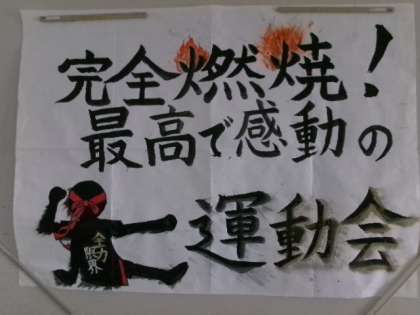 完全燃焼!
最高で感動の
運動会
全力
限界